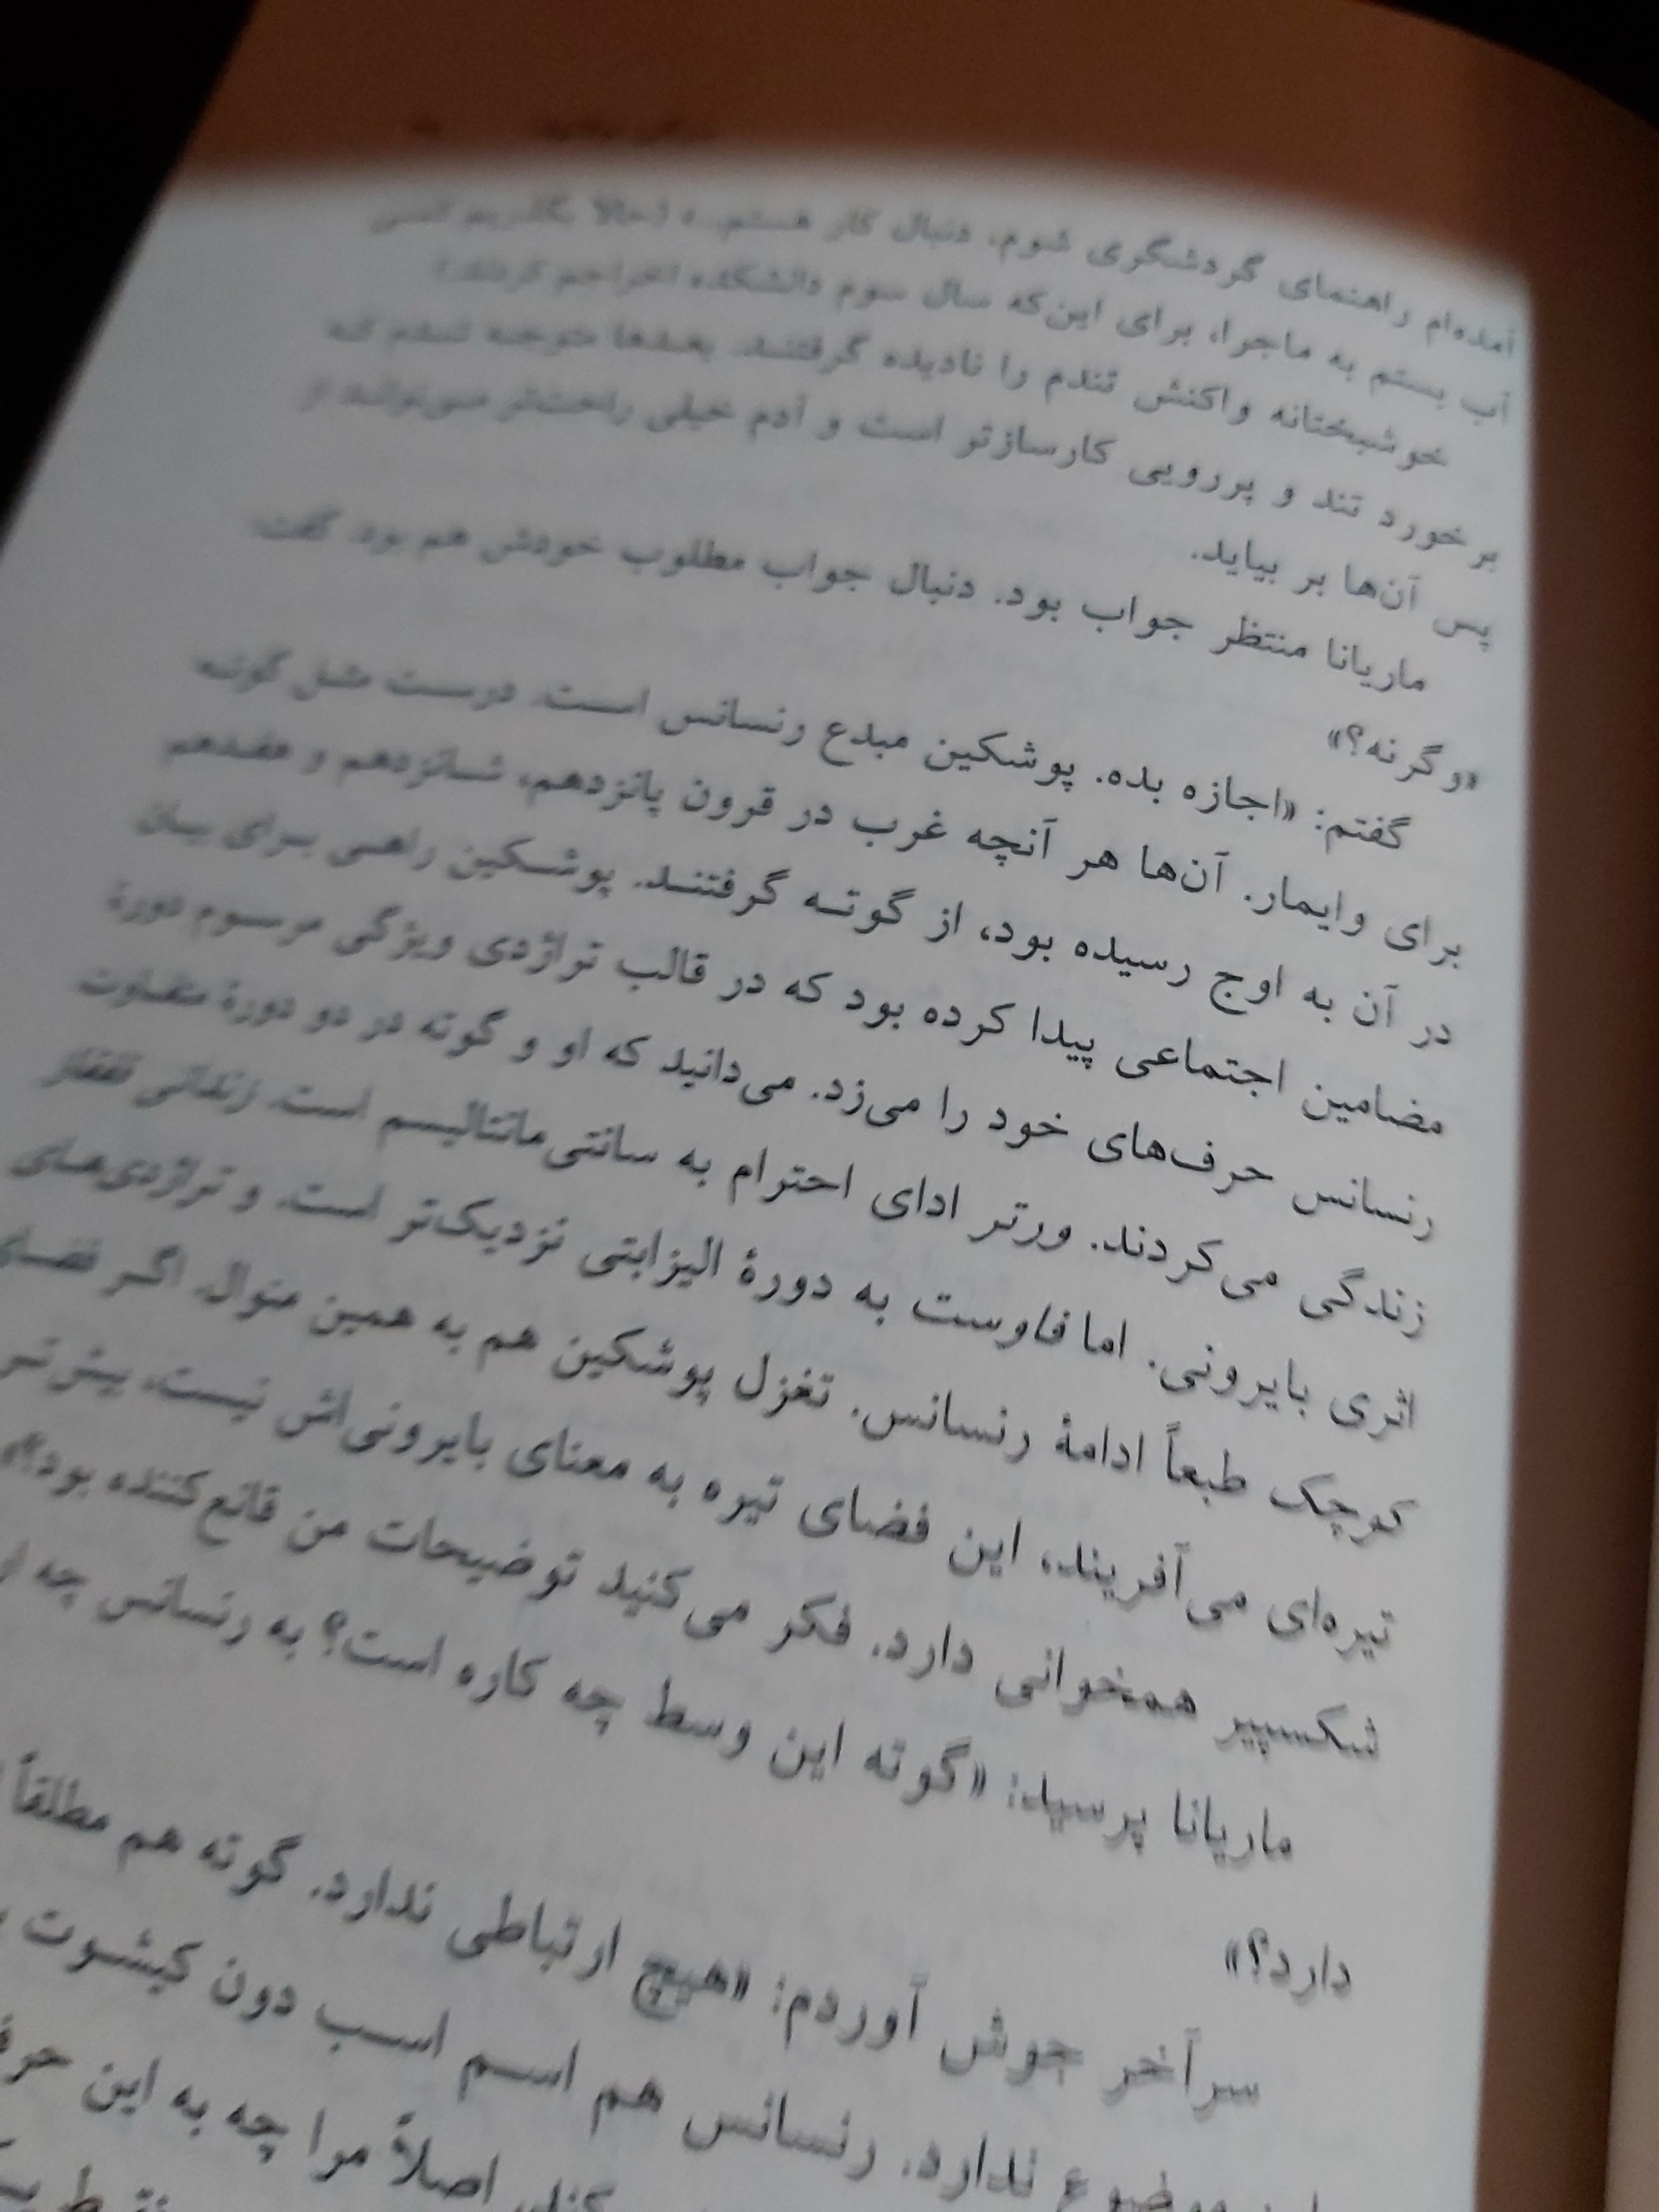 آمده‌ام راهنمای گردشگری شوم، دنبال کار هستم.» (حالا بگذریم کمی
آب بستم به ماجرا، برای این‌که سال سوم دانشکده اخراجم کردند.)
خوشبختانه واکنش تندم را نادیده گرفتند. بعدها متوجه شدم که
برخورد تند و پررویی کارسازتر است و آدم خیلی راحت‌تر می‌تواند از
پس آن‌ها بر بیاید.
ماریانا منتظر جواب بود. دنبال جواب مطلوب خودش هم بود. گفت:
«وگرنه؟»
گفتم: «اجازه بده. پوشکین مبدع رنسانس است. درست مثل گوته
برای وایمار. آن‌ها هر آنچه غرب در قرون پانزدهم، شانزدهم و هفدهم
در آن به اوج رسیده بود، از گوته گرفتند. پوشکین راهی برای بیان
مضامین اجتماعی پیدا کرده بود که در قالب تراژدی ویژگی مرسوم دورهٔ
رنسانس حرف‌های خود را می‌زد. می‌دانید که او و گوته در دو دورهٔ متفاوت
زندگی می‌کردند. ورتر ادای احترام به سانتی‌مانتالیسم است. زندانی قفقاز
اثری بایرونی. اما فاوست به دورهٔ الیزابتی نزدیک‌تر است. و تراژدی‌های
کوچک طبعاً ادامهٔ رنسانس. تغزل پوشکین هم به همین منوال. اگر فضای
تیره‌ای می‌آفریند، این فضای تیره به معنای بایرونی‌اش نیست، بیش‌تر
شکسپیر همخوانی دارد. فکر می‌کنید توضیحات من قانع‌کننده بود؟»
ماریانا پرسید: «گوته این وسط چه کاره است؟ به رنسانس چه
دارد؟»
سرآخر جوش آوردم: «هیچ ارتباطی ندارد. گوته هم مطلقاً
موضوع ندارد. رنسانس هم اسم اسب دون کیشوت
اصلاً مرا چه به این